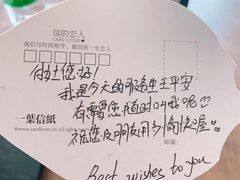 信的恋人
CARD LOVER
我们与时间相守,做信的一生恋人
付姐您好!
我是今天的服务生王平安
有需要您随时叫我呢
祝您及朋友用餐愉快喔
一葉信紙
www.cardlover.cn All right
邮编:
Best wishes to you